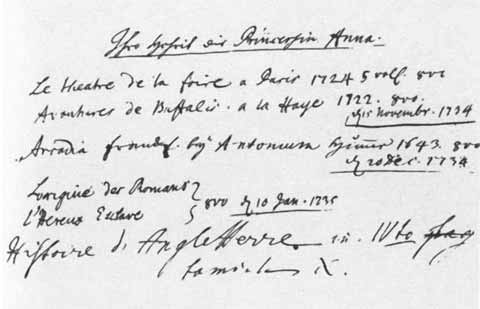 Ihro hoheit die Princessin Anna.
Le theatre de la foire a Paris 1724 5 voll. 8vo
Avantures de Buffalis. a la Haye 1722. 8vo.
15 Novembr. 1734
Arcadia by Antonium 1643. 8vo
20 dec. 1734
Lorigine des Romans
l'Hereux Esclave } 8vo d 10 Jan. 1735
Histoire d'Angleterre. in. IVto
X.